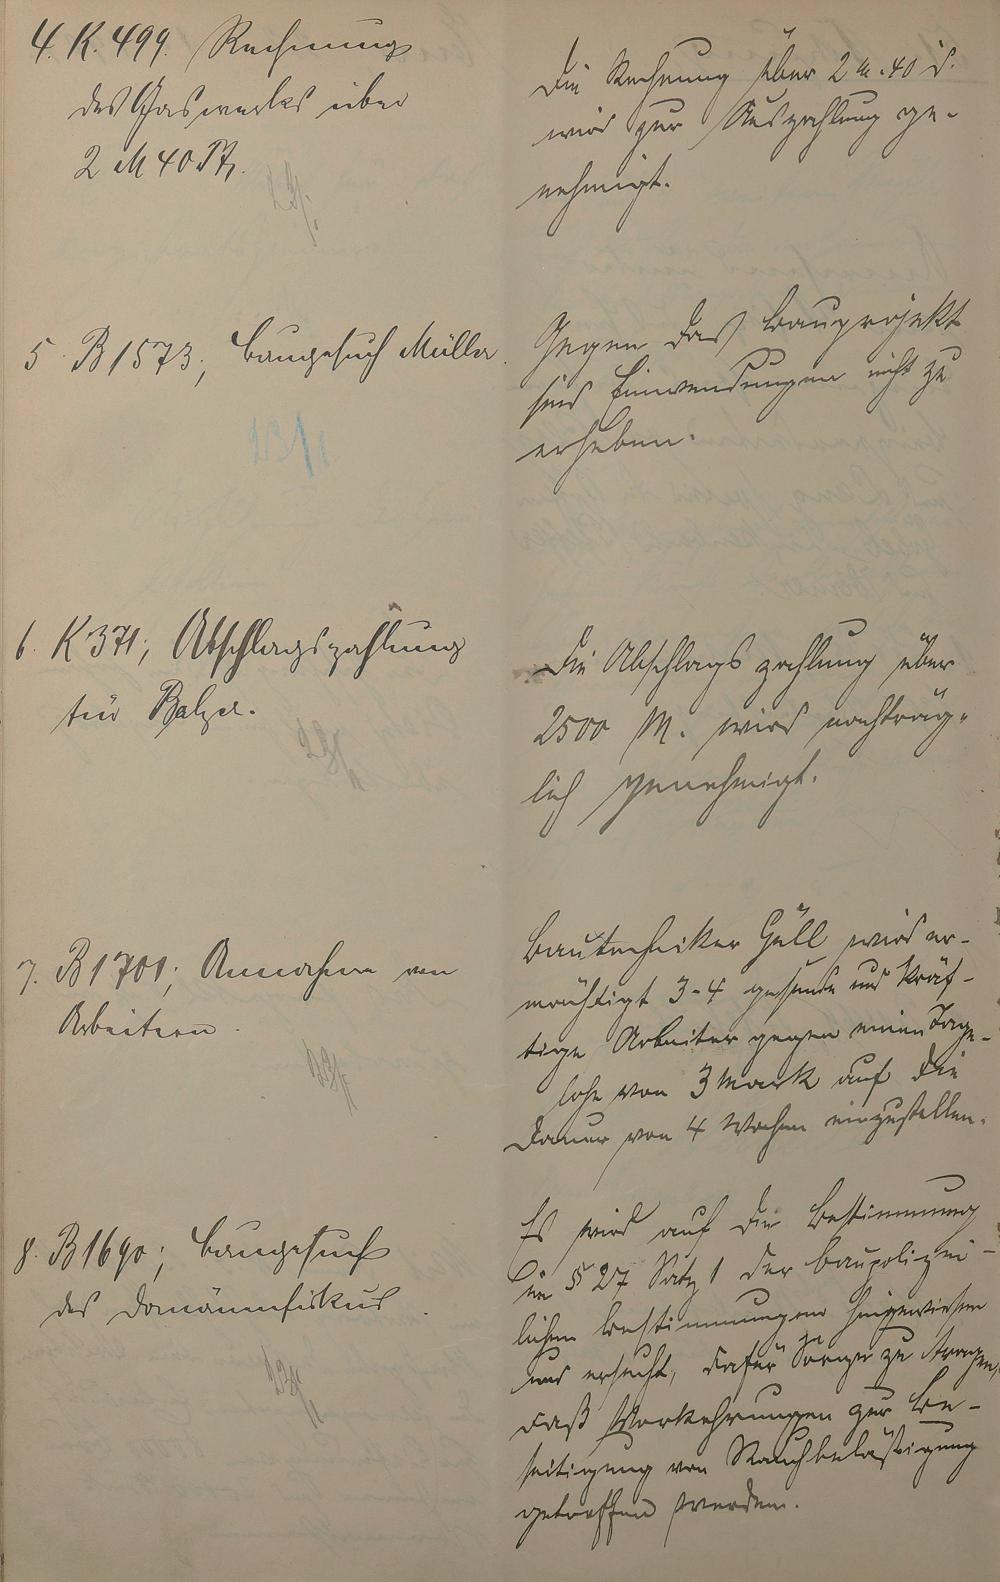 4. K. 499. Rechnung
des Gaswerkes über
2 M 40 Pf.
Die Rechnung über 2 M. 40 d.
wird zur Auszahlung ge-
nehmigt.
5. B 1573; Baugesuch Müller.
Gegen das Bauprojekt
sind Einwendungen nicht zu
erheben.
6. K 371; Abschlagszahlung
für Balzer.
Die Abschlagszahlung über
2500 M. wird nachträg-
lich genehmigt.
7. B 1701; Annahme von
Arbeitern.
Bautechniker Güll wird er-
mächtigt 3-4 gesunde und kräf-
tige Arbeiter gegen einen Tage-
lohn von 3 Mark auf die
Dauer von 4 Wochen einzustellen.
8. B 1690; Baugesuch
des Domänenfiskus.
Es wird auf die Bestimmung
in § 27 Satz 1 der baupolizei-
lichen Bestimmungen hingewiesen
und ersucht, dafür Sorge zu tragen,
daß Vorkehrungen zur Be-
seitigung von Rauchbelästigung
getroffen werden.